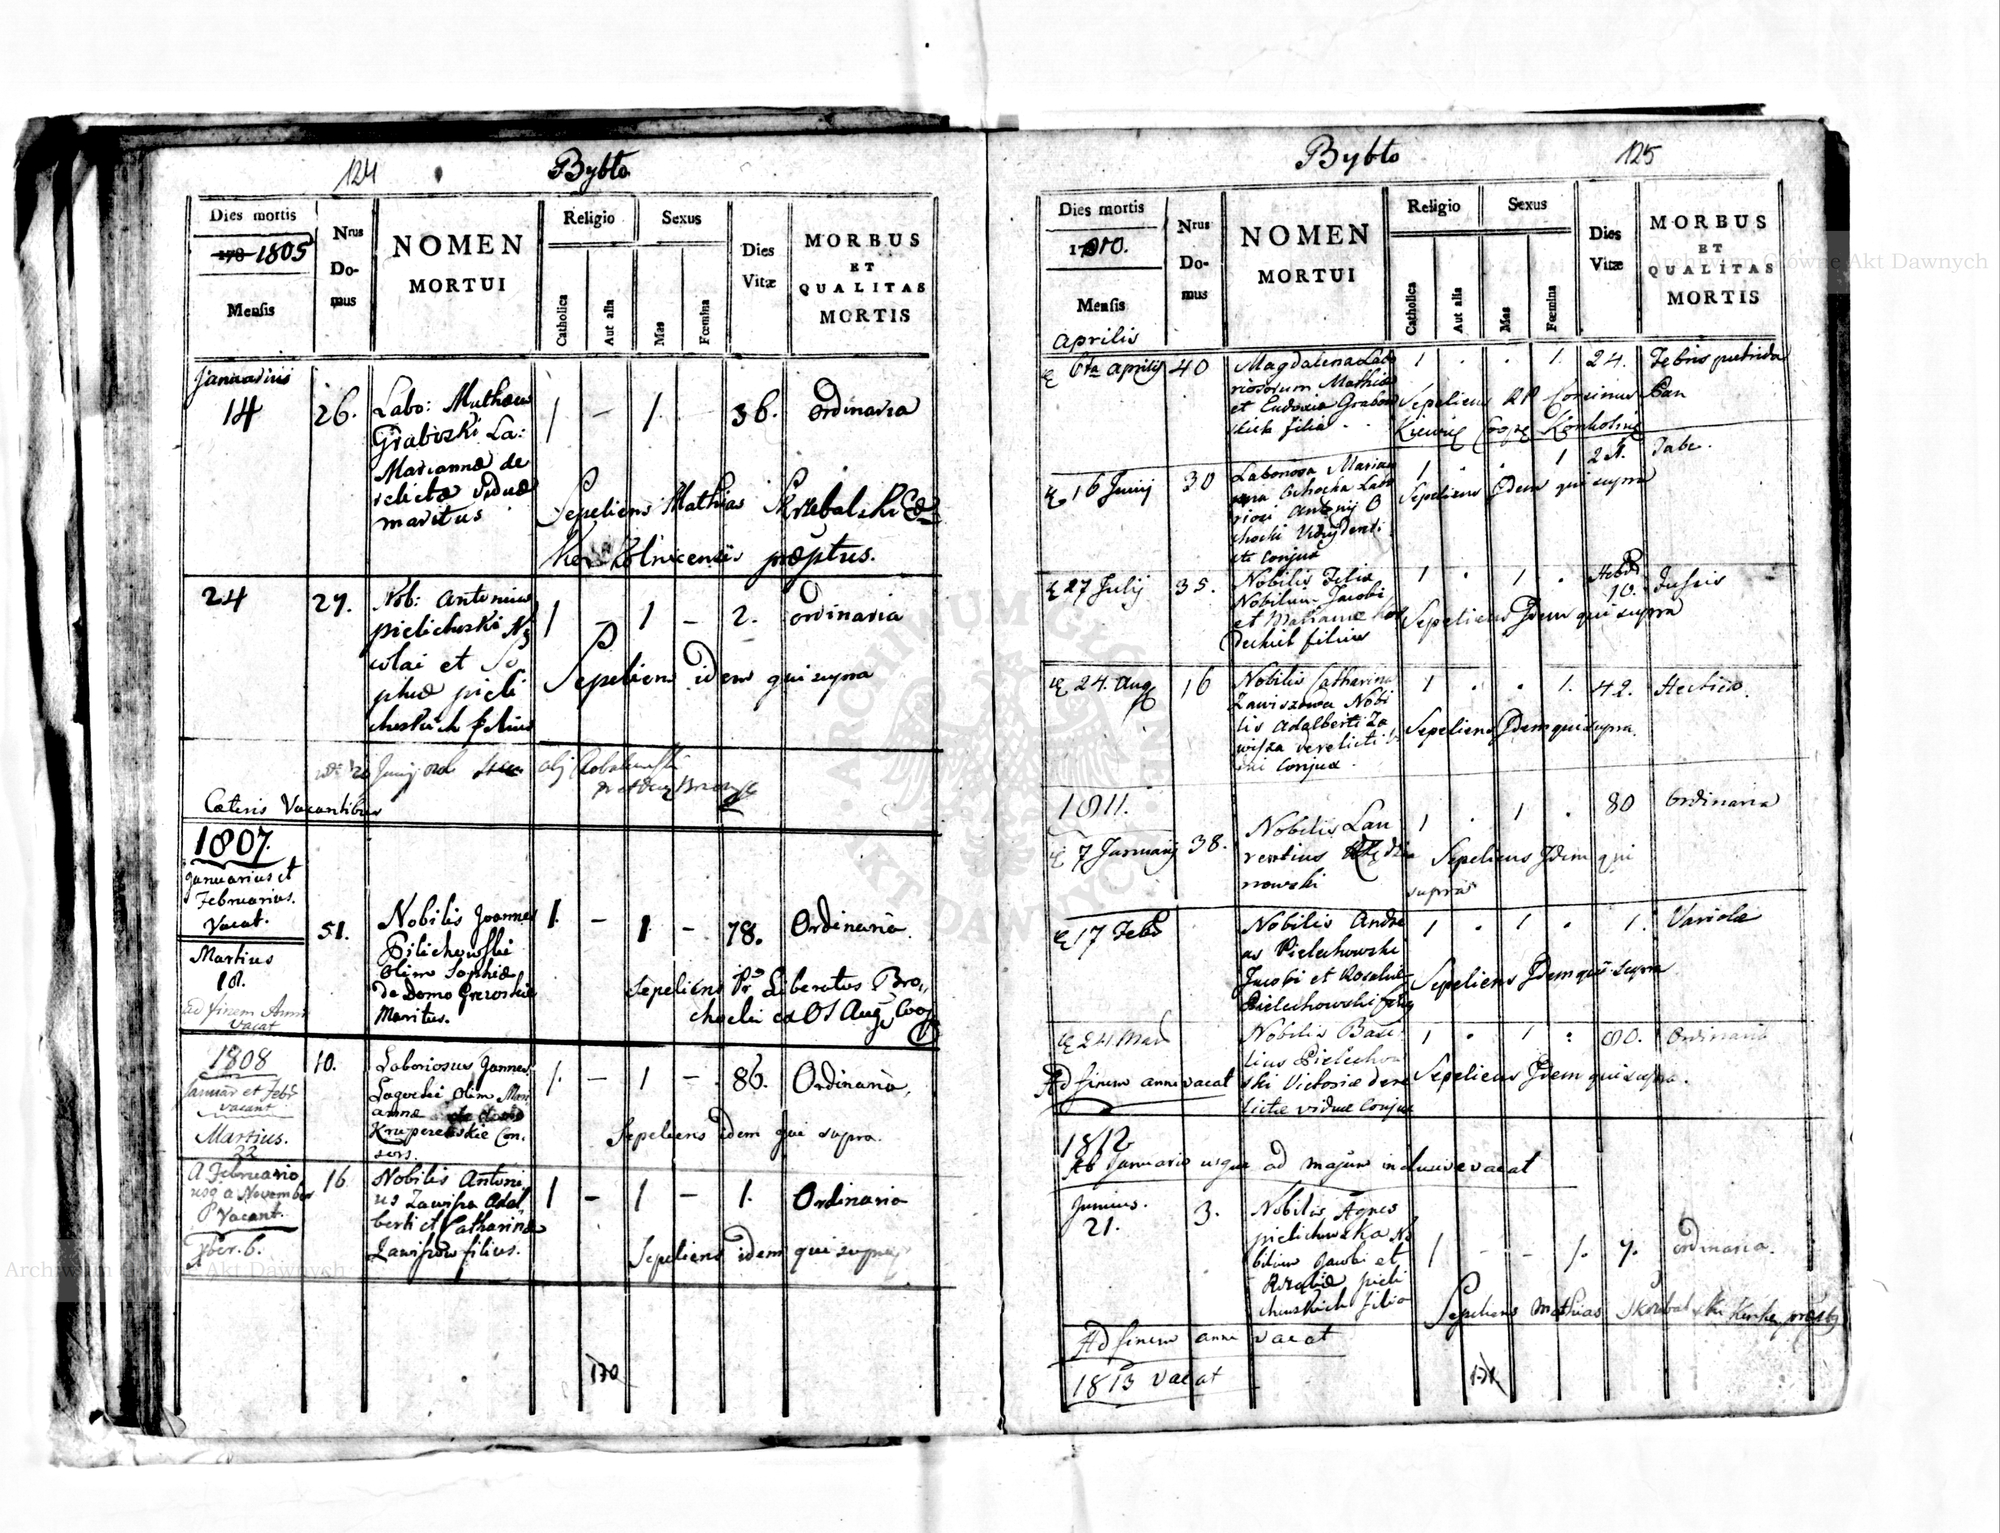 124
Bybło
Dies mortis
178 1805
Mensis
Nrus
Do-
mus
NOMEN
MORTUI
Religio
Catholica
Aut alia
Sexus
Mas
Fœmina
Dies
Vitæ
MORBUS
ET
QUALITAS
MORTIS
Januarius
14
26.
Labo: Mathæus
Grabiski La:
Mariannæ de
relictæ viduæ
maritus
1 - 1 36. Ordinaria
Sepeliens Mathias Skrabalski
præptus.
24
27.
Nob: Antonius
pielichuski Ny
colai et So
phiæ pieli
chuskich filius
1 - 1 - 2. ordinaria
Sepeliens idem qui supra
Cæteris Vacantibus
1807.
Januarius et
Februarius.
Vacat.
Martius
18.
ad finem Anni
vacat
51.
Nobilis Joannes
Pilichowski
olim Sophiæ
de Domo
Maritus.
1. - 1 - 78. Ordinaria.
Sepeliens Pr Liberatus Bro,,
chocki
1808
Januar et Febr
vacant
Martius.
22
10.
Laboriosus Joannes
olim Mari
annæ
Con,
sors.
1. - 1 - 86. Ordinaria,
Sepeliens idem qui supra.
A Februario
usq a November
Vacant.
Xber. 6.
16
Nobilis Antoni,
us Zawisza Adal,
berti et Catharinæ
filius.
1 - 1 - 1. Ordinaria
Sepeliens idem qui supra
170
Bybło
125
Dies mortis
1810.
Mensis
Aprilis
Nrus
Do-
mus
NOMEN
MORTUI
Religio
Catholica
Aut alia
Sexus
Mas
Fœmina
Dies
Vitæ
MORBUS
ET
QUALITAS
MORTIS
6ta Aprilis
40
Magdalena Labo
riosorum Mathiæ
et Ludoviæ Grabow
skich filia
1 . . 1. 24. Febris putrida
Sepeliens RP
16 Junij
30
Marian
na Ochocka Labo
riosi Antonij O
chocki
conjux
1 . . 1 Tabe.
Sepeliens Idem qui supra
27 Julij
35.
Nobilis Felix
Nobilium Jacobi
et Mariannæ
filius
1 . 1 . Hebd 10. Tussis
Sepeliens Idem qui supra
24. Aug
16
Nobilis Catharina
Zawiszowa Nobi
lis Adalberti Za
wisza derelicti
conjux.
1 . . 1. 42. Hectica.
Sepeliens Idem qui supra.
1811.
7 Januarij
38.
Nobilis Lau
rentius
nowski
1 . 1 . 80 Ordinaria
Sepeliens Idem qui
supra
17 Feb
Nobilis Andre
as Pielechowski
Jacobi et Rosaliæ
Pielechowski
1 . 1 . 1. Variolæ
Sepeliens Idem qui supra
24 Mar
Nobilis Basi
lius Pielechow
ski Victoriæ dere
lictæ viduæ conjux
1 . 1 . 80. Ordinaria
Sepeliens Idem qui supra.
Ad finem anni vacat
1812
Ab Januario usque ad majum inclusive vacat
Junius.
21.
3.
Nobilis Agnes
pielichowska No
bilium Jacobi et
Rozaliæ pieli
chuskich filia
1 - - 1. 7. ordinaria.
Sepeliens Mathias Skrabalski
Ad finem anni vacat
1813 vacat
171
ARCHIWUM GŁÓWNE AKT DAWNYCH
Archiwum Główne Akt Dawnych
Archiwum Główne Akt Dawnych